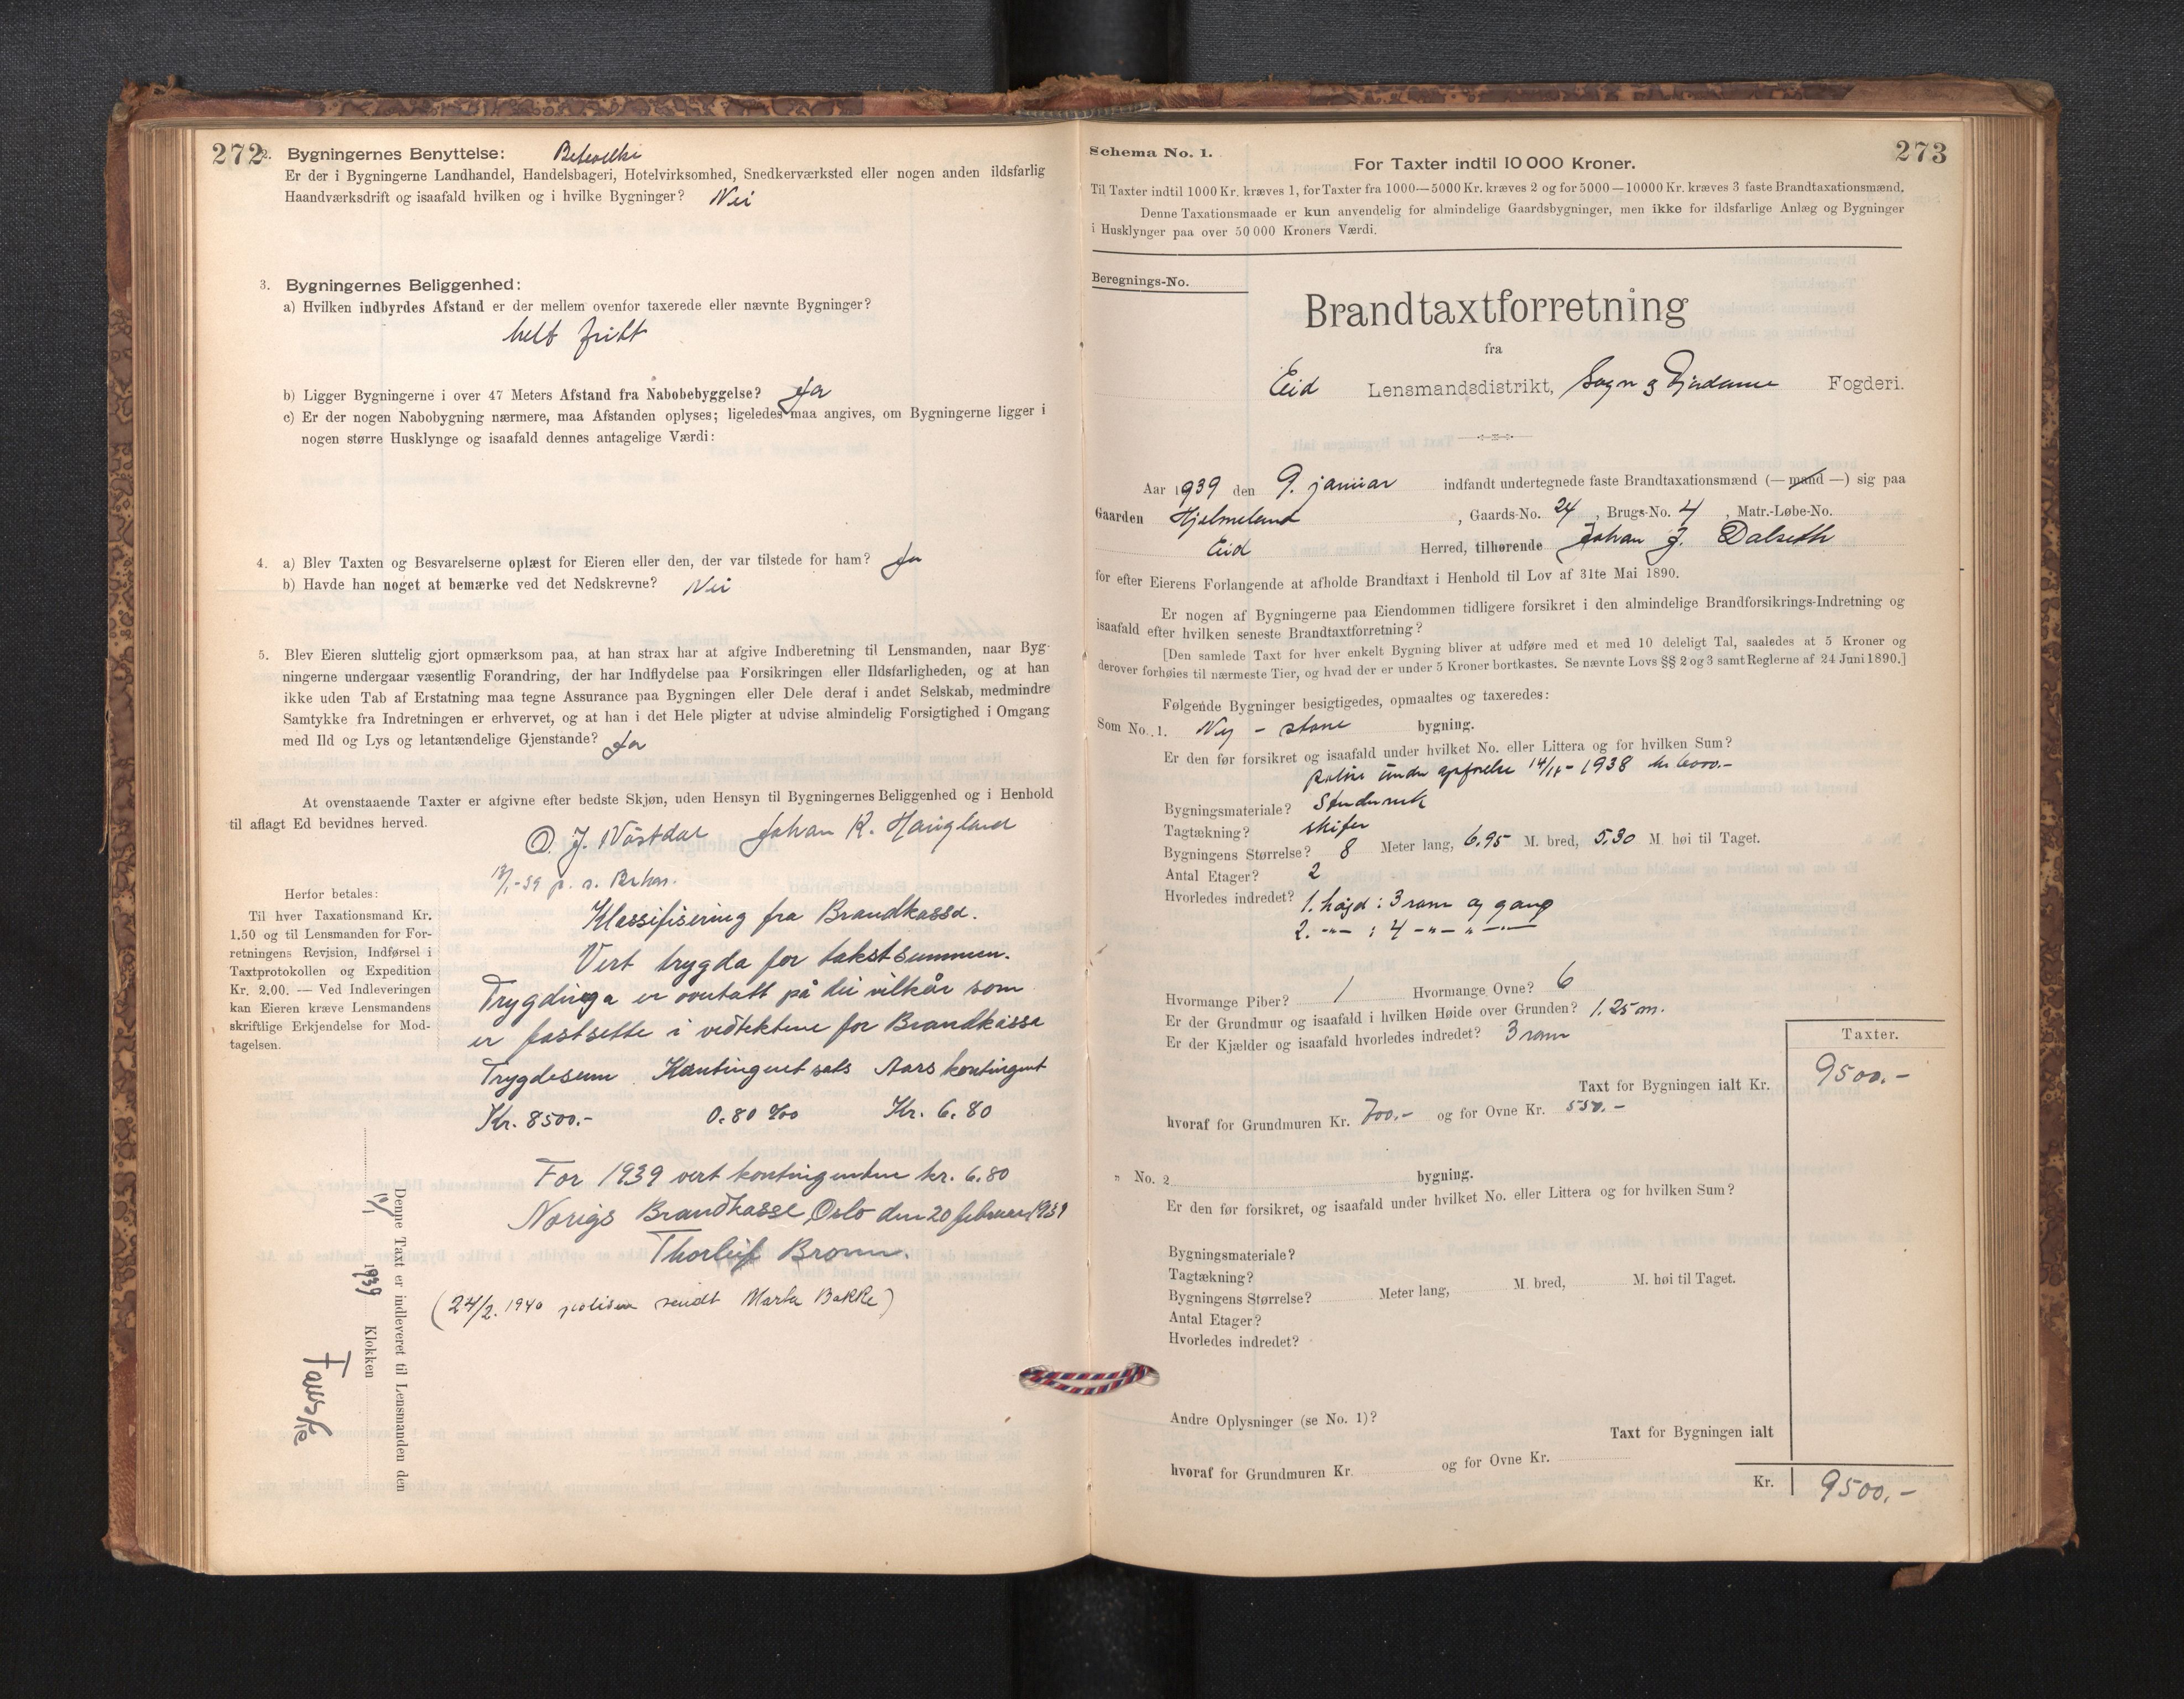 272
2. Bygningernes Benyttelse:
Er der i Bygningerne Landhandel, Handelsbageri, Hotelvirksomhed, Snedkerværksted eller nogen anden ildsfarlig
Haandværksdrift og isaafald hvilken og i hvilke Bygninger? Nei
3. Bygningernes Beliggenhed:
a) Hvilken indbyrdes Afstand er der mellem ovenfor taxerede eller nævnte Bygninger?
helt fritt
b) Ligger Bygningerne i over 47 Meters Afstand fra Nabobebyggelse? Ja
c) Er der nogen Nabobygning nærmere, maa Afstanden oplyses; ligeledes maa angives, om Bygningerne ligger i
nogen større Husklynge og isaafald dennes antagelige Værdi:
4. a) Blev Taxten og Besvarelserne oplæst for Eieren eller den, der var tilstede for ham? Ja
b) Havde han noget at bemærke ved det Nedskrevne? Nei
5. Blev Eieren sluttelig gjort opmærksom paa, at han strax har at afgive Indberetning til Lensmanden, naar Byg-
ningerne undergaar væsentlig Forandring, der har Indflydelse paa Forsikringen eller Ildsfarligheden, og at han
ikke uden Tab af Erstatning maa tegne Assurance paa Bygningen eller Dele deraf i andet Selskab, medmindre
Samtykke fra Indretningen er erhvervet, og at han i det Hele pligter at udvise almindelig Forsigtighed i Omgang
med Ild og Lys og letantændelige Gjenstande? Ja
At ovenstaaende Taxter er afgivne efter bedste Skjøn, uden Hensyn til Bygningernes Beliggenhed og i Henhold
til aflagt Ed bevidnes herved.
O. J. Nåstdal Johan K. Haugland
Herfor betales:
Til hver Taxationsmand Kr.
1.50 og til Lensmanden for For-
retningens Revision, Indførsel i
Taxtprotokollen og Expedition
Kr. 2.00. — Ved Indleveringen
kan Eieren kræve Lensmandens
skriftlige Erkjendelse for Mod-
tagelsen.
Klassifisering fra Brandkassa.
Vert trygda for takstsummen.
Trygdinga er overtatt på dei vilkår som
er fastsette i vedtektene for Brandkassa
Trygdesum Kontingentsats Aars kontingent
Kr. 8500.- 0.80 ‰ Kr. 6.80
For 1939 vert kontingenten kr. 6.80
Norigs Brandkasse, Oslo den 20 februar 1939
Thorleif Bronn.
(24/2. 1940 polisen sendt Marta Bakke)
Denne Taxt er indleveret til Lensmanden den
10/1 1939 Klokken
273
Schema No. 1.
For Taxter indtil 10 000 Kroner.
Til Taxter indtil 1000 Kr. kræves 1, for Taxter fra 1000—5000 Kr. kræves 2 og for 5000—10000 Kr. kræves 3 faste Brandtaxationsmænd.
Denne Taxationsmaade er kun anvendelig for almindelige Gaardsbygninger, men ikke for ildsfarlige Anlæg og Bygninger
i Husklynger paa over 50 000 Kroners Værdi.
Beregnings-No.
Brandtaxtforretning
fra
Eid Lensmandsdistrikt, Sogn og Fjordane Fogderi.
Aar 1939 den 9. januar indfandt undertegnede faste Brandtaxationsmænd (— mand —) sig paa
Gaarden Hjelmeland, Gaards-No. 24, Brugs-No. 4, Matr.-Løbe-No.
Eid Herred, tilhørende Johan J. Dalseth
for efter Eierens Forlangende at afholde Brandtaxt i Henhold til Lov af 31te Mai 1890.
Er nogen af Bygningerne paa Eiendommen tidligere forsikret i den almindelige Brandforsikrings-Indretning og
isaafald efter hvilken seneste Brandtaxtforretning?
[Den samlede Taxt for hver enkelt Bygning bliver at udføre med et med 10 deleligt Tal, saaledes at 5 Kroner og
derover forhøies til nærmeste Tier, og hvad der er under 5 Kroner bortkastes. Se nævnte Lovs §§ 2 og 3 samt Reglerne af 24 Juni 1890.]
Følgende Bygninger besigtigedes, opmaaltes og taxeredes:
Som No. 1. Ny - stove bygning.
Er den før forsikret og isaafald under hvilket No. eller Littera og for hvilken Sum?
under opførelse 1938 kr 6000.-
Bygningsmateriale?
Tagtækning? skifer
Bygningens Størrelse? 8 Meter lang, 6.95 M. bred, 5.30 M. høi til Taget.
Antal Etager? 2
Hvorledes indredet? 1. høgd: 3 rom og gang
2. -"- : 4 -"- " -"-
Hvormange Piber? 1 Hvormange Ovne? 6
Er der Grundmur og isaafald i hvilken Høide over Grunden? 1.25 m.
Er der Kjælder og isaafald hvorledes indredet? 3 rom
Taxter.
Taxt for Bygningen ialt Kr. 9500.-
hvoraf for Grundmuren Kr. 700.- og for Ovne Kr. 550.-
" No. 2 bygning.
Er den før forsikret, og isaafald under hvilket No. eller Littera og for hvilken Sum?
Bygningsmateriale?
Tagtækning?
Bygningens Størrelse? Meter lang, M. bred, M. høi til Taget.
Antal Etager?
Hvorledes indredet?
Andre Oplysninger (se No. 1)?
Taxt for Bygningen ialt
hvoraf for Grundmuren Kr. og for Ovne Kr.
Kr. 9500.-